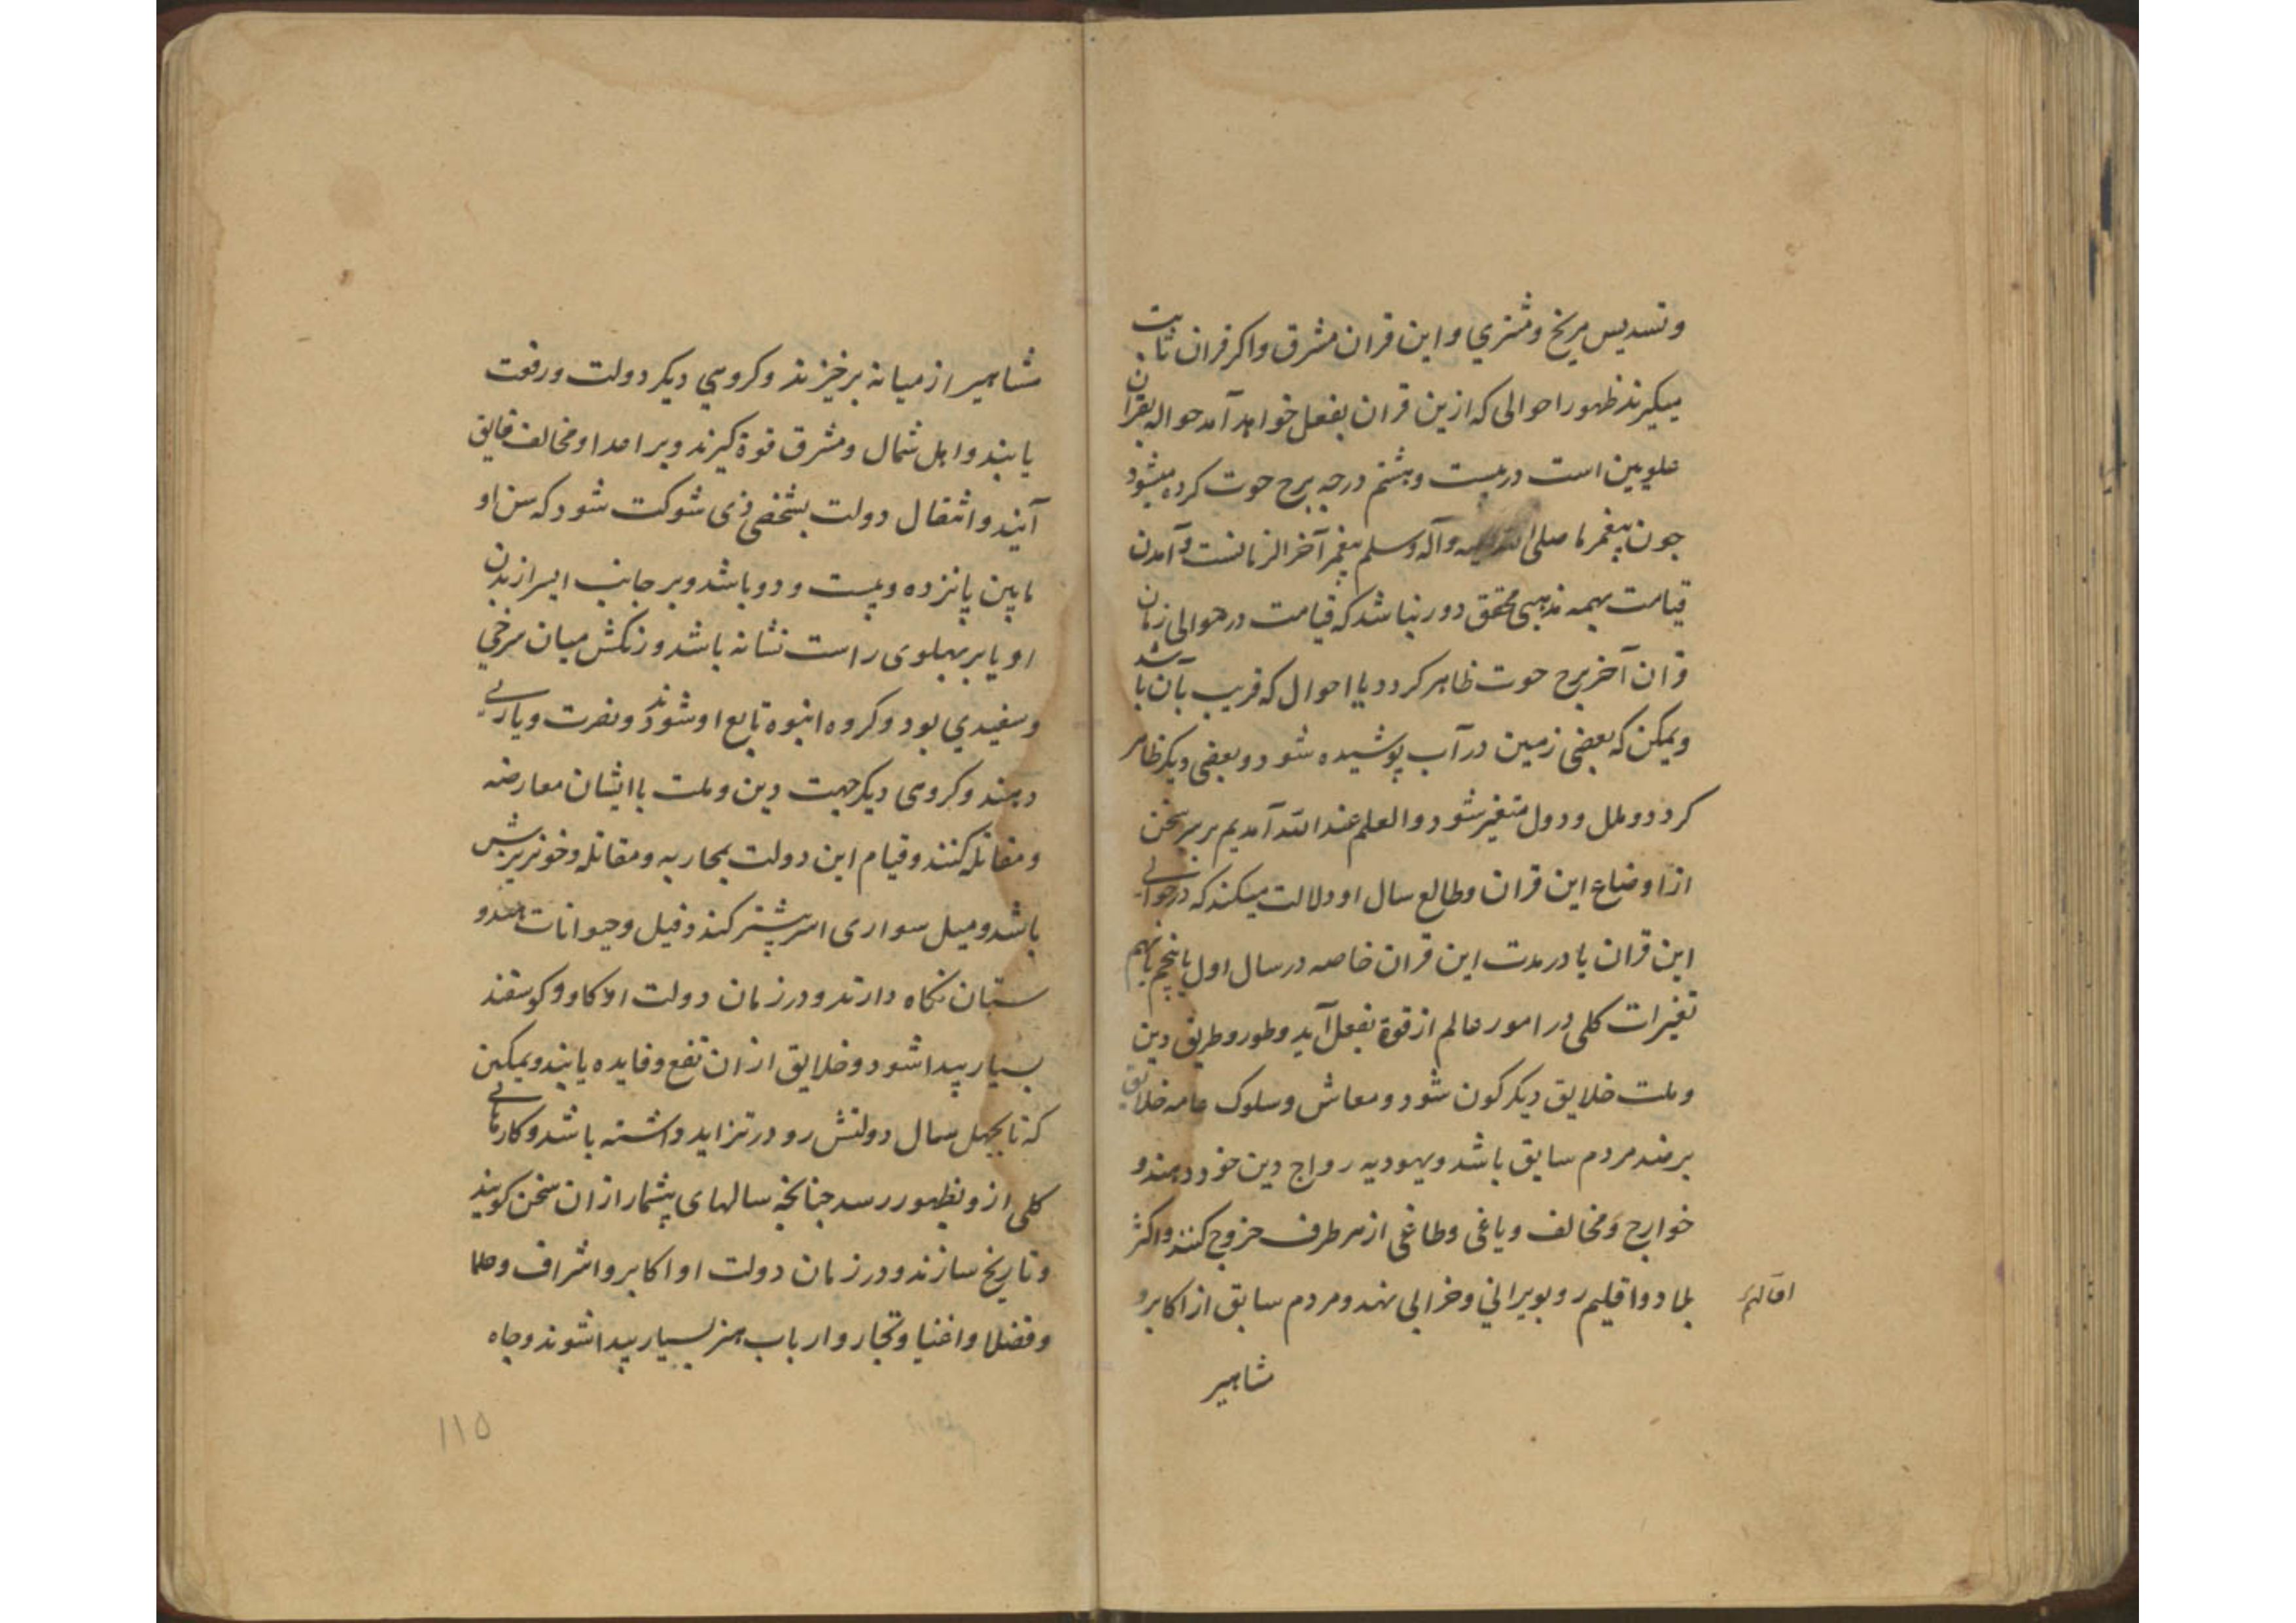 وتسدیس مریخ ومشتري واین قران مشرق واکر قران ثابت
میکیرند ظهور احوالی که ازین قران بفعل خواهد آمد حواله بقران
علویین است در بیست وهشتم درجه برج حوت کرده میشود
جون پیغمر ما صلی الله علیه وآله وسلم پیغمر آخر الزمانست وآمدن
قیامت بهمه مذهبی محقق دور نباشد که قیامت در حوالی زمان
قران آخر برج حوت ظاهر کردد یا احوال که قریب بآن باشد
ویمکن که بعضی زمین در آب پوشیده شود وبعضی دیکر ظاهر
کردد وملل ودول متغیر شود والعلم عند الله آمدیم بر سر سخن
از اوضاع این قران وطالع سال او دلالت میکند که در حوالی
این قران یا در مدت این قران خاصه در سال اول یا پنجم یا نهم
تغیرات کلی در امور عالم از قوة بفعل آید وطور وطریق دین
وملت خلایق دیکرکون شود ومعاش وسلوک عامه خلایق
بر ضد مردم سابق باشد ویهودیه رواج دین خود دهند و
خوارج ومخالف ویاغی وطاغی از هر طرف خروج کنند واکثر
بلاد واقلیم رو بویراني وخرابی نهد ومردم سابق از اکابر و
اقالیم
مشاهیر
مشاهیر از میانه برخیزند وکروهي دیکر دولت ورفعت
یابند واهل شمال ومشرق قوة کیرند وبر اعدا ومخالف فایق
آیند وانتقال دولت بشخصی ذی شوکت شود که سن او
مابین پانزده وبیست ودو باشد وبر جانب ایسر از بدن
او یا بر پهلوی راست نشانه باشد ورنکش میان سرخي
وسفیدي بود وکروه انبوه تابع او شوند ونصرت ویاریی
دهند وکروهی دیکر جهت دین وملت با ایشان معارضه
ومقاتله کنند وقیام این دولت بمحاربه ومقاتله وخونریزش
باشد ومیل سواری اسر بیشتر کند وفیل وحیوانات هندو
ستان نکاه دارند ودر زمان دولت او کاو وکوسفند
بسیار پیدا شود وخلایق از ان نفع وفایده یابند ویمکن
که تا بچهل سال دولتش رو در تزاید داشته باشد وکارهایی
کلی از و بظهور رسد جنانجه سالهای بیشمار از ان سخن کویند
وتاریخ سازند ودر زمان دولت او اکابر واشراف وعلما
وفضلا واغنیا وتجار وارباب هنر بسیار پیدا شوند وجاه
۱۱۵